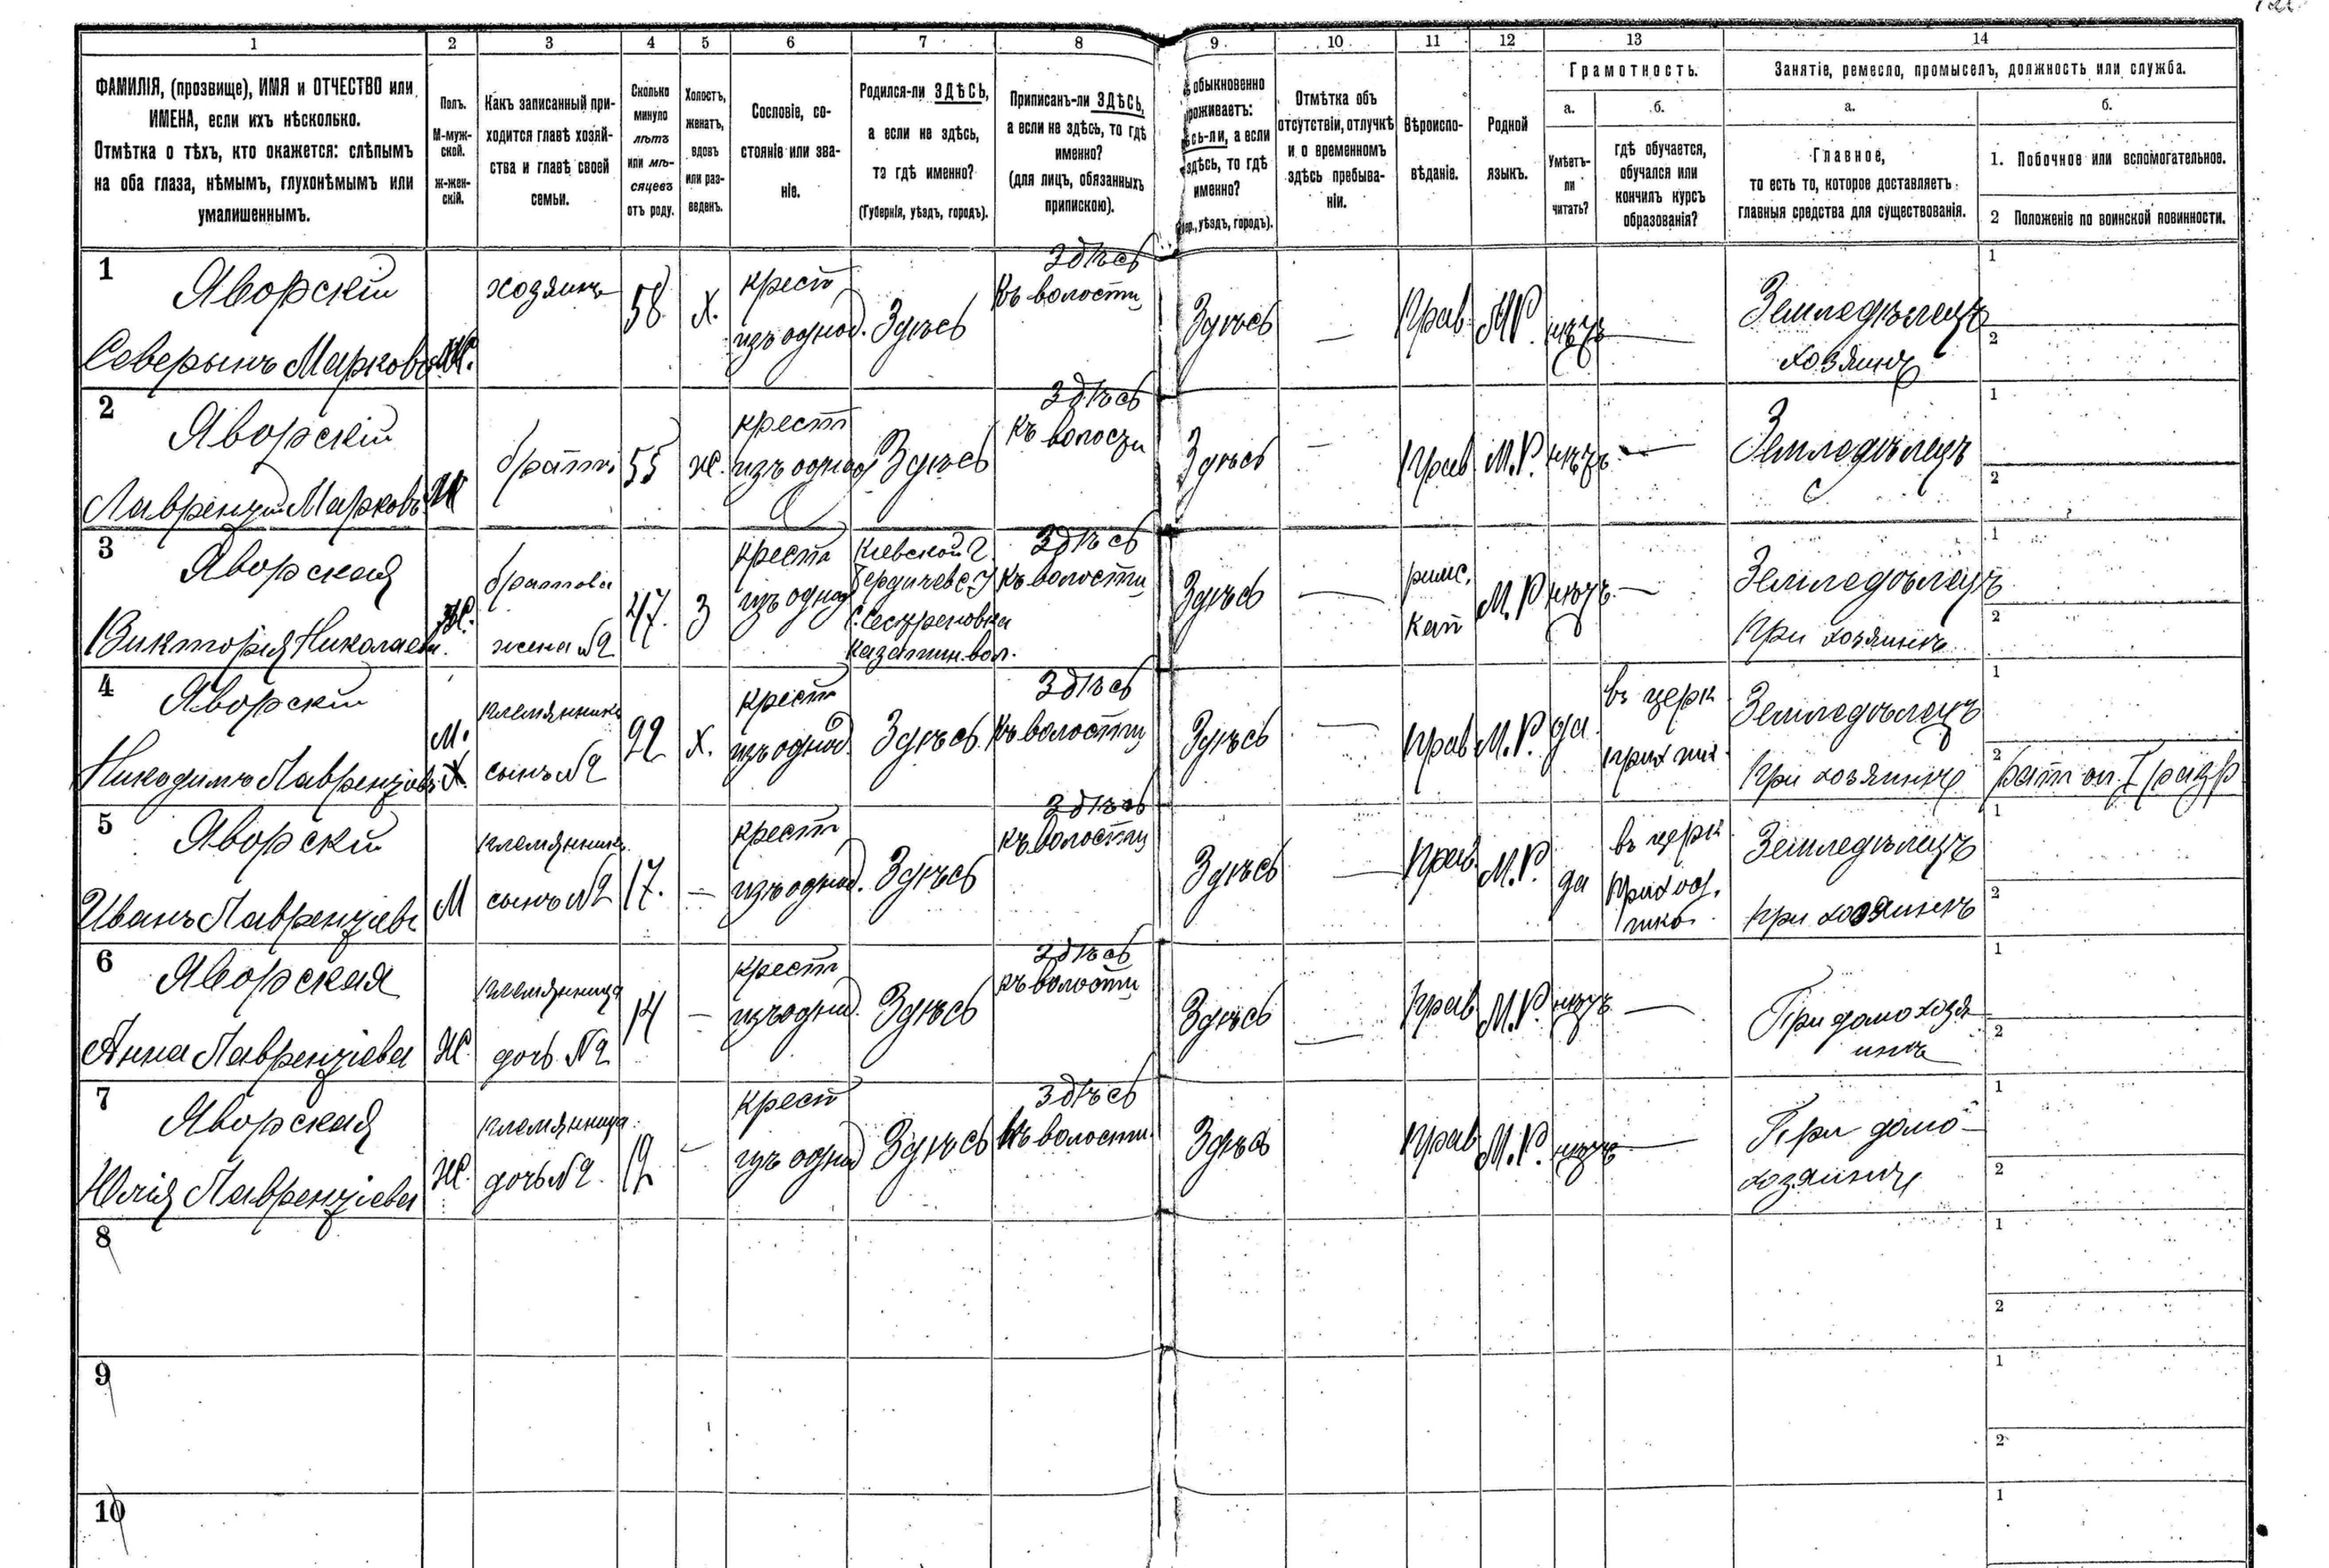 1 2 3 4 5 6 7 8 9 10 11 12 13 14
ФАМИЛІЯ, (прозвище), ИМЯ и ОТЧЕСТВО или
ИМЕНА, если ихъ нѣсколько.
Отмѣтка о тѣхъ, кто окажется: слѣпымъ
на оба глаза, нѣмымъ, глухонѣмымъ или
умалишеннымъ.
Полъ.
М-муж-
ской.
Ж-жен-
скій.
Какъ записанный при-
ходится главѣ хозяй-
ства и главѣ своей
семьи.
Сколько
минуло
лѣтъ
или мѣ-
сяцевъ
отъ роду.
Холостъ,
женатъ,
вдовъ
или раз-
веденъ.
Сословіе, со-
стояніе или зва-
ніе.
Родился-ли ЗДѢСЬ,
а если не здѣсь,
то гдѣ именно?
(Губернія, уѣздъ, городъ).
Приписанъ-ли ЗДѢСЬ,
а если не здѣсь, то гдѣ
именно?
(для лицъ, обязанныхъ
припискою).
обыкновенно
роживаетъ:
сь-ли, а если
здѣсь, то гдѣ
именно?
уѣздъ, городъ).
Отмѣтка объ
отсутствіи, отлучкѣ
и о временномъ
здѣсь пребыва-
ніи.
Вѣроиспо-
вѣданіе.
Родной
языкъ.
Грамотность.
а.
Умѣетъ-
ли
читать?
б.
гдѣ обучается,
обучался или
кончилъ курсъ
образованія?
Занятіе, ремесло, промыселъ, должность или служба.
а.
Главное,
то есть то, которое доставляетъ
главныя средства для существованія.
б.
1. Побочное или вспомогательное.
2 Положеніе по воинской повинности.
1
Яворскій
Северынъ Марковъ
М.
хозяинъ
58
Х.
крест
изъ однод.
Здѣсь
Здѣсь
Къ волости
Здѣсь
—
Прав
М.Р.
нѣтъ
—
Земледѣлецъ
хозяинъ
1
2
2
Яворскій
Лаврентій Марковъ
М
братъ
55
ж.
крест
изъ однод
Здѣсь
Здѣсь
Къ волости
Здѣсь
—
Прав
М.Р.
нѣтъ
—
Земледѣлецъ
1
2
3
Яворская
Виктория Николаевн.
Ж.
братова
жена №2
47.
З
крест
изъ однод
Кіевской г.
Бердичев. у
с. Сестреновка
Казатин. вол.
Здѣсь
Къ волости
Здѣсь
—
римс.
кат
М.Р
нѣтъ
—
Земледѣлец
При хозяинѣ
1
2
4
Яворскій
Никодимъ Лаврентіевъ
М.
Х.
племянникъ
сынъ №2
22
Х.
крест
изъ однод.
Здѣсь
Здѣсь
Къ волости
Здѣсь
—
Прав
М.Р.
да
въ церк
Земледѣлецъ
При хозяинѣ
1
2
рат оп. I разр
5
Яворскій
Иванъ Лаврентіевъ
М
племянникъ
сынъ №2
17.
—
крест
изъ однод.
Здѣсь
Здѣсь
къ волости
Здѣсь
—
Прав
М.Р.
да
въ церк
приход.
Земледѣлецъ
при хозяинѣ
1
2
6
Яворская
Анна Лаврентіева
Ж.
племянница
дочь №2
14
—
крест
изъ однод.
Здѣсь
Здѣсь
къ волости
Здѣсь
—
Прав
М.Р.
нѣтъ
—
При домохозя
инѣ
1
2
7
Яворская
Юлія Лаврентіева
Ж.
племянница
дочь №2.
12
-
крест
изъ однод
Здѣсь
Здѣсь
Къ волости.
Здѣсь
Прав
М.Р.
нѣтъ
—
При домо-
хозяинѣ
1
2
8
1
2
9
1
2
10
1